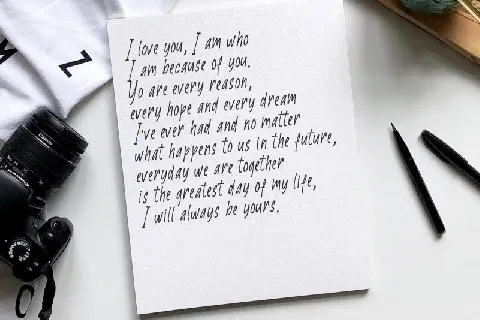 I love you, I am who
I am because of you.
Yo are every reason,
every hope and every dream
I've ever had and no matter
what happens to us in the future,
everyday we are together
is the greatest day of my life,
I will always be yours.
Z
Canon